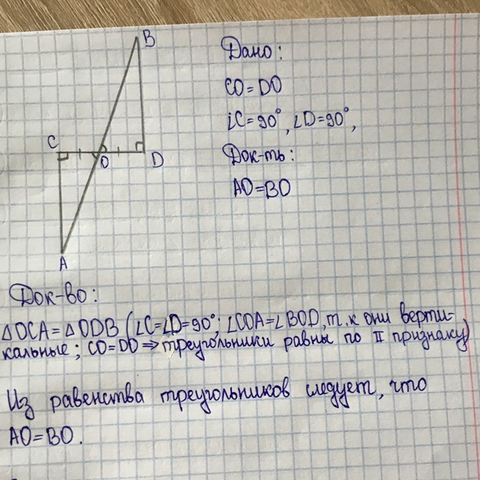 B
Дано:
CO=DO
∠C=90°, ∠D=90°,
Док-ть:
AO=BO
C
O
D
A
Док-во:
△OCA=△ODB (∠C=∠D=90°; ∠COA=∠BOD, т.к они верти-
кальные; CO=DO ⇒ треугольники равны по II признаку)
Из равенства треугольников следует, что
AO=BO.